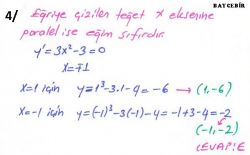 BAYCEBİR
4/ Eğriye çizilen teğet x eksenine
paralel ise eğim sıfırdır.
y' = 3x² - 3 = 0
x = ∓1
x=1 için y = 1³ - 3.1 - 4 = -6 → (1, -6)
x=-1 için y = (-1)³ - 3(-1) - 4 = -1+3-4 = -2
(-1, -2)
CEVAP: E